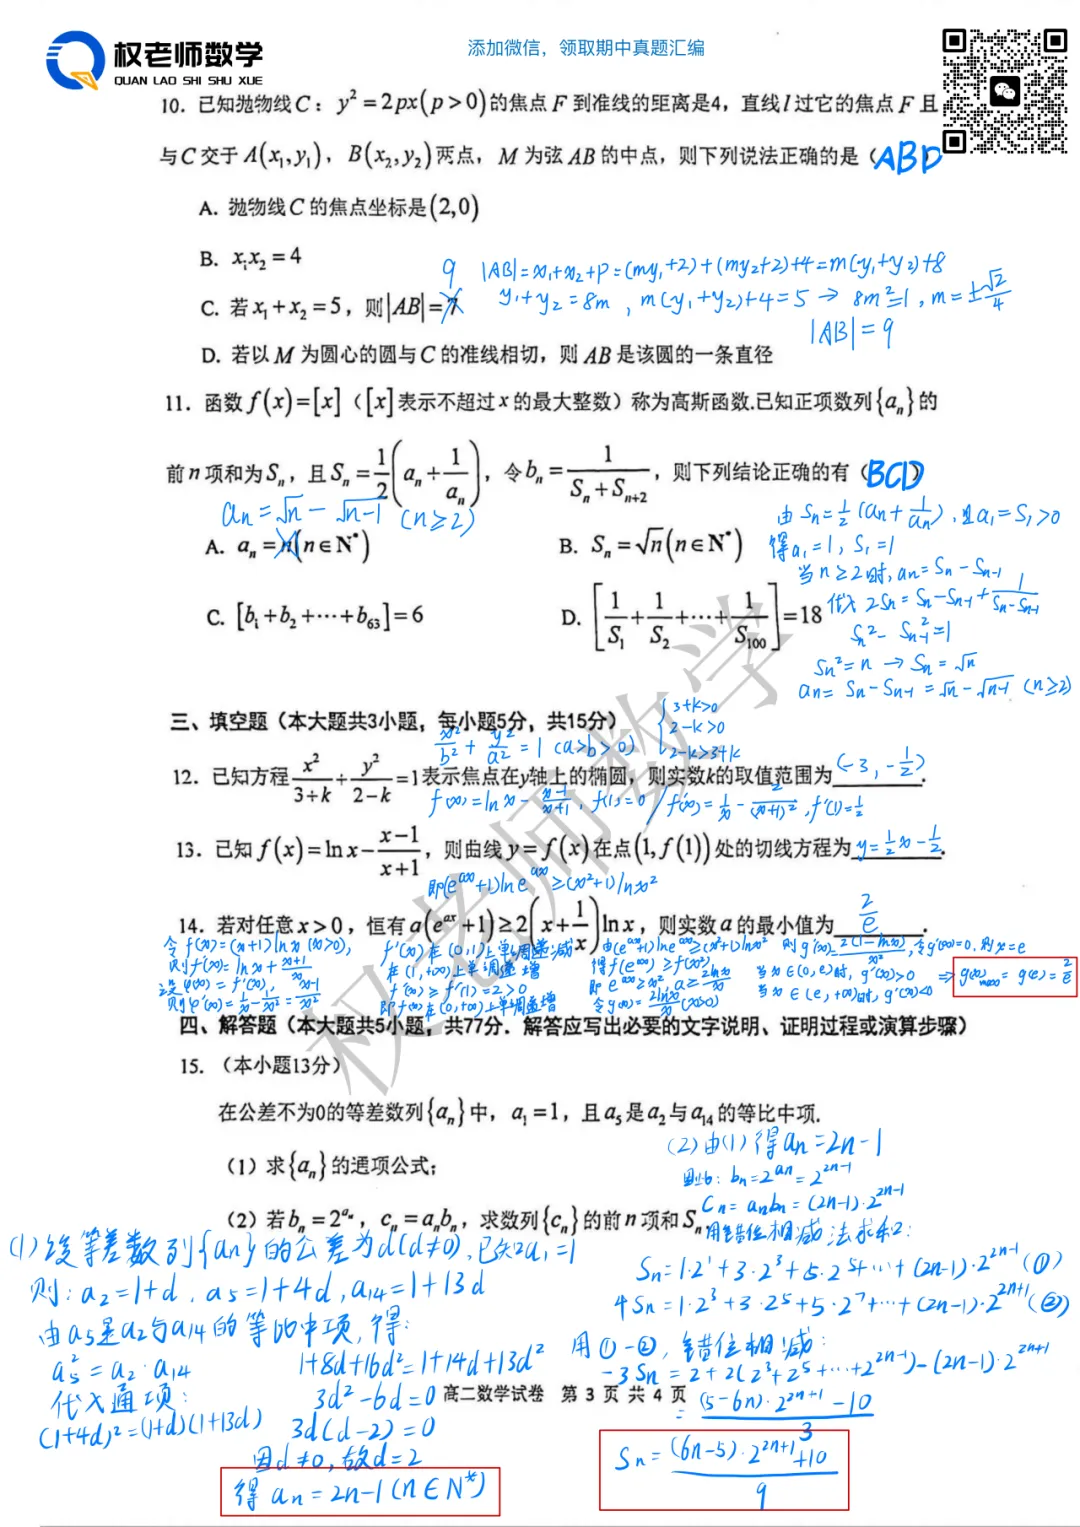 权老师数学
QUAN LAO SHI SHU XUE
添加微信，领取期中真题汇编
10. 已知抛物线C：y²=2px(p>0)的焦点F到准线的距离是4，直线l过它的焦点F且
与C交于A(x₁,y₁)，B(x₂,y₂)两点，M为弦AB的中点，则下列说法正确的是（ABD）
A. 抛物线C的焦点坐标是(2,0)
B. x₁x₂=4
9 |AB|=x₁+x₂+p=(my₁+2)+(my₂+2)+4=m(y₁+y₂)+8
C. 若x₁+x₂=5，则|AB|=7
y₁+y₂=8m, m(y₁+y₂)+4=5→8m²=1, m=±√2/4
|AB|=9
D. 若以M为圆心的圆与C的准线相切，则AB是该圆的一条直径
11. 函数f(x)=[x]（[x]表示不超过x的最大整数）称为高斯函数.已知正项数列{aₙ}的
前n项和为Sₙ，且Sₙ=1/2(aₙ+1/aₙ)，令bₙ=1/(Sₙ+Sₙ₊₂)，则下列结论正确的有（BCD）
aₙ=√n-√(n-1) (n≥2)
A. aₙ=n(n∈N*)
B. Sₙ=√n(n∈N*)
C. [b₁+b₂+⋯+b₆₃]=6
D. [1/S₁+1/S₂+⋯+1/S₁₀₀]=18
由Sₙ=½(aₙ+1/aₙ),且a₁=S₁>0
得a₁=1, S₁=1
当n≥2时,aₙ=Sₙ-Sₙ₋₁
代入 2Sₙ=Sₙ-Sₙ₋₁+1/(Sₙ-Sₙ₋₁)
Sₙ²-Sₙ₋₁²=1
Sₙ²=n→Sₙ=√n
aₙ=Sₙ-Sₙ₋₁=√n-√(n-1) (n≥2)
三、填空题（本大题共3小题，每小题5分，共15分）
x²/b²+y²/a²=1 (a>b>0)
3+k>0
2-k>0
2-k>3+k
12. 已知方程x²/(3+k)+y²/(2-k)=1表示焦点在y轴上的椭圆，则实数k的取值范围为(-3,-1/2).
f(x)=ln x-(x-1)/(x+1), f(1)=0 / f'(x)=1/x-2/(x+1)², f'(1)=1/2
13. 已知f(x)=ln x-(x-1)/(x+1)，则曲线y=f(x)在点(1,f(1))处的切线方程为y=½x-½.
即(e^(ax)+1)ln e^(ax)≥(x²+1)ln x²
14. 若对任意x>0，恒有a(e^(ax)+1)≥2(x+1/x)ln x，则实数a的最小值为2/e.
令f(x)=(x+1)ln x (x>0),
则f'(x)=ln x+(x+1)/x
设φ(x)=f'(x),
则φ'(x)=1/x-1/x²=(x-1)/x²
f'(x)在(0,1)上单调递减
在(1,+∞)上单调递增
f'(x)≥f'(1)=2>0
即f(x)在(0,+∞)上单调递增
由(e^(ax)+1)ln e^(ax)≥(x²+1)ln x²
得f(e^(ax))≥f(x²)
即e^(ax)≥x², a≥2ln x/x
令g(x)=2ln x/x (x>0)
则g'(x)=2(1-ln x)/x²,令g'(x)=0,则x=e
当x∈(0,e)时, g'(x)>0
当x∈(e,+∞)时, g'(x)<0
⇒ g(x)max=g(e)=2/e
四、解答题（本大题共5小题，共77分．解答应写出必要的文字说明、证明过程或演算步骤）
15.（本小题13分）
在公差不为0的等差数列{aₙ}中，a₁=1，且a₅是a₂与a₁₄的等比中项.
（1）求{aₙ}的通项公式；
（2）若bₙ=2^(aₙ)，cₙ=aₙbₙ，求数列{cₙ}的前n项和Sₙ.
(1)设等差数列{aₙ}的公差为d(d≠0),已知a₁=1
则:a₂=1+d, a₅=1+4d, a₁₄=1+13d
由a₅是a₂与a₁₄的等比中项,得:
a₅²=a₂·a₁₄
代入通项:
(1+4d)²=(1+d)(1+13d)
1+8d+16d²=1+14d+13d²
3d²-6d=0
3d(d-2)=0
因d≠0,故d=2
得 aₙ=2n-1(n∈N*)
(2)由(1)得aₙ=2n-1
则: bₙ=2^(aₙ)=2^(2n-1)
Cₙ=aₙbₙ=(2n-1)·2^(2n-1)
用错位相减法求和:
Sₙ=1·2¹+3·2³+5·2⁵+⋯+(2n-1)·2^(2n-1)(①)
4Sₙ=1·2³+3·2⁵+5·2⁷+⋯+(2n-1)·2^(2n+1)(②)
用①-②,错位相减:
-3Sₙ=2+2(2³+2⁵+⋯+2^(2n-1))-(2n-1)·2^(2n+1)
=((5-6n)·2^(2n+1)-10)/3
Sₙ=((6n-5)·2^(2n+1)+10)/9
高二数学试卷 第 3 页 共 4 页
权老师数学